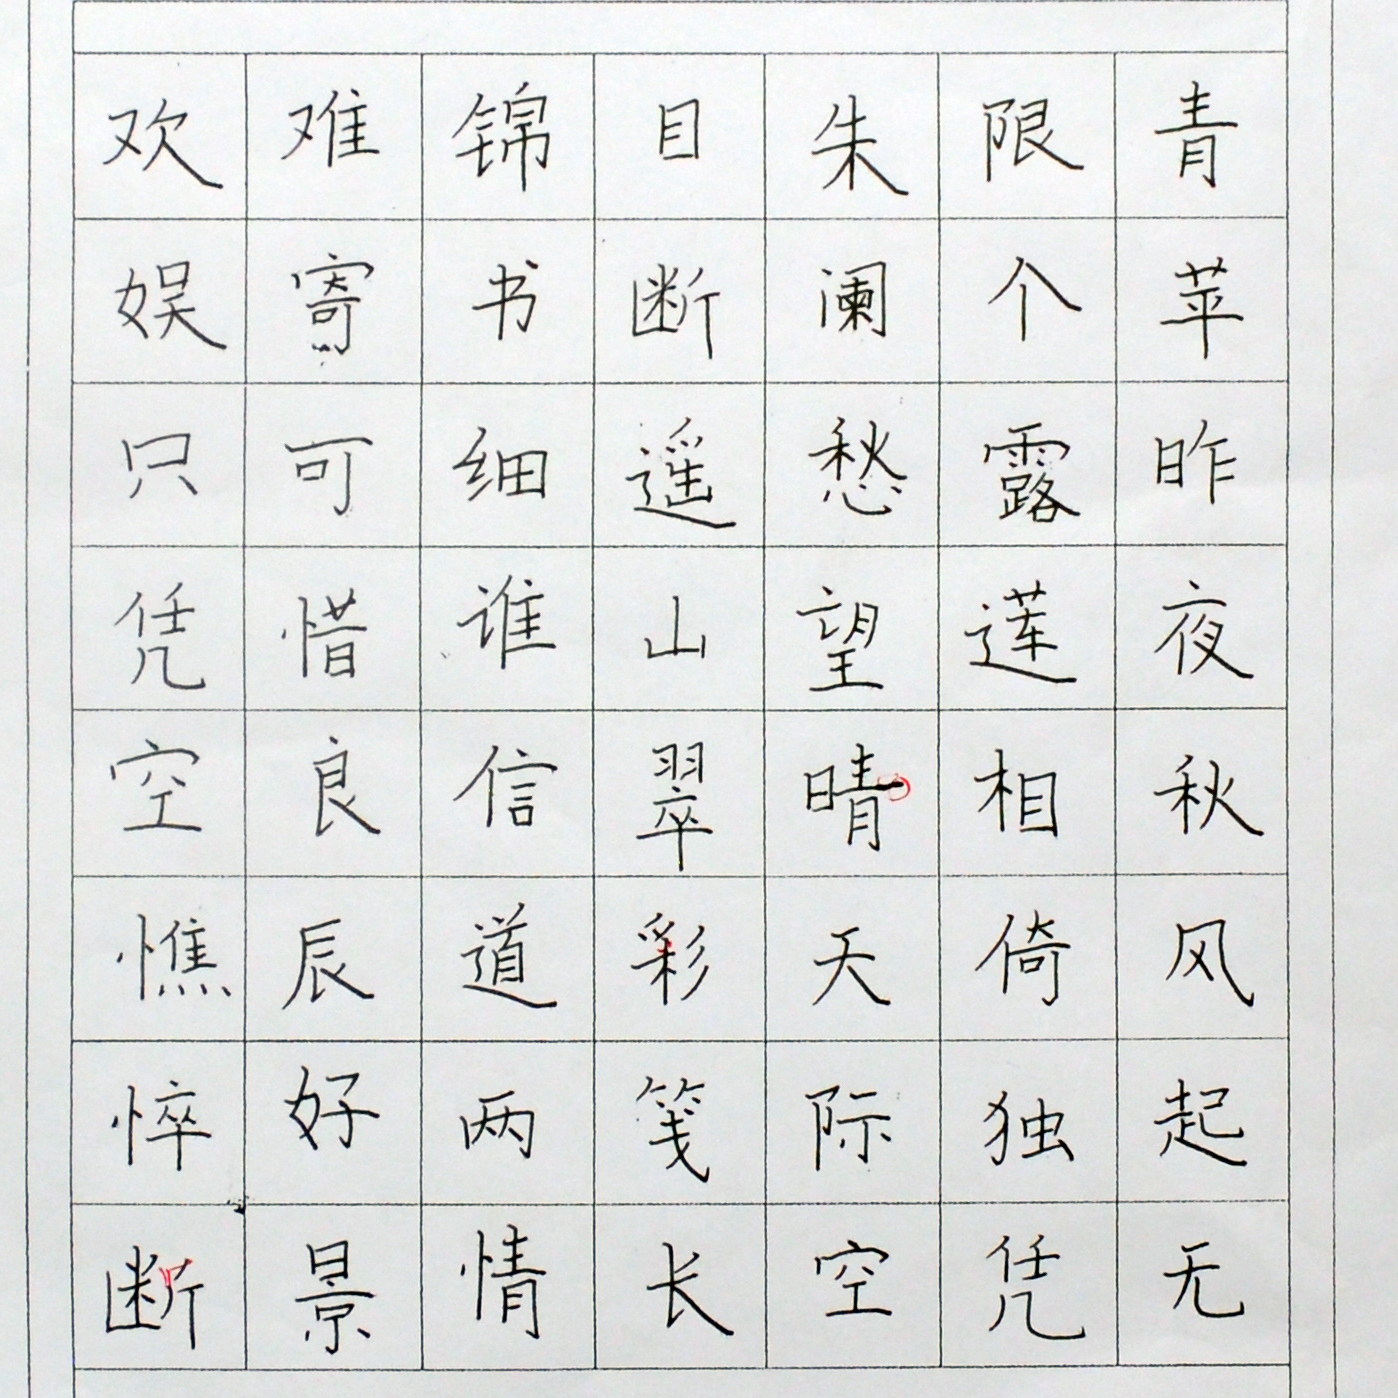 青苹昨夜秋风起无
限个露莲相倚独凭
朱阑愁望晴天际空
目断遥山翠彩笺长
锦书细谁信道两情
难寄可惜良辰好景
欢娱只凭空憔悴断